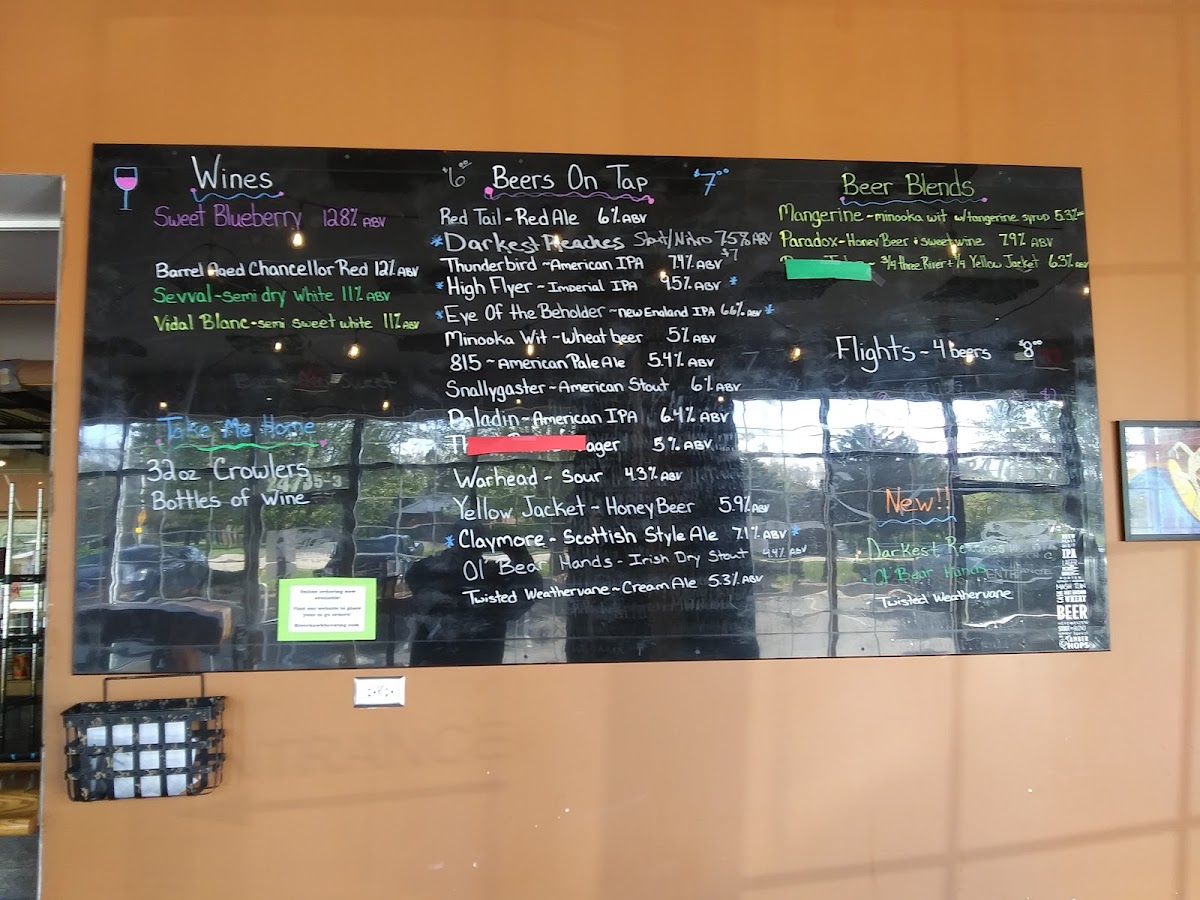 Wines
Sweet Blueberry 12.8% ABV
Barrel Aged Chancellor Red 12% ABV
Sevval-semi dry white 11% ABV
Vidal Blanc-semi sweet white 11% ABV
Take Me Home
32oz Crowlers
Bottles of Wine
Online ordering now
available!
Visit our website to place
your to go orders!
$6.00 Beers On Tap $7.00
Red Tail-Red Ale 6% ABV
*Darkest Reaches Stout/Nitro 7.5% ABV
Thunderbird ~American IPA 7.4% ABV $7
*High Flyer ~ Imperial IPA 9.5% ABV *
*Eye Of the Beholder ~new England IPA 6.6% ABV *
Minooka Wit ~Wheat beer 5% ABV
815 ~ American Pale Ale 5.4% ABV
Snallygaster ~American Stout 6% ABV
Paladin ~ American IPA 6.4% ABV
5% ABV
Warhead - Sour 4.3% ABV
Yellow Jacket ~ Honey Beer 5.9% ABV
* Claymore - Scottish Style Ale 7.1% ABV *
Ol' Bear Hands - Irish Dry Stout 4.4% ABV
Twisted Weathervane ~ Cream Ale 5.3% ABV
Beer Blends
Mangerine ~ minooka wit w/tangerine syrup 5.3%
Paradox - Honey Beer + sweet wine 7.9% ABV
~ 3/4 three River + 1/4 Yellow Jacket 6.3% ABV
Flights ~ 4 beers $8.00
New!!
Darkest Reaches
Ol' Bear Hands
Twisted Weathervane
IPA
MASH TUN
WHEAT
BEER
AMBER
HOPS